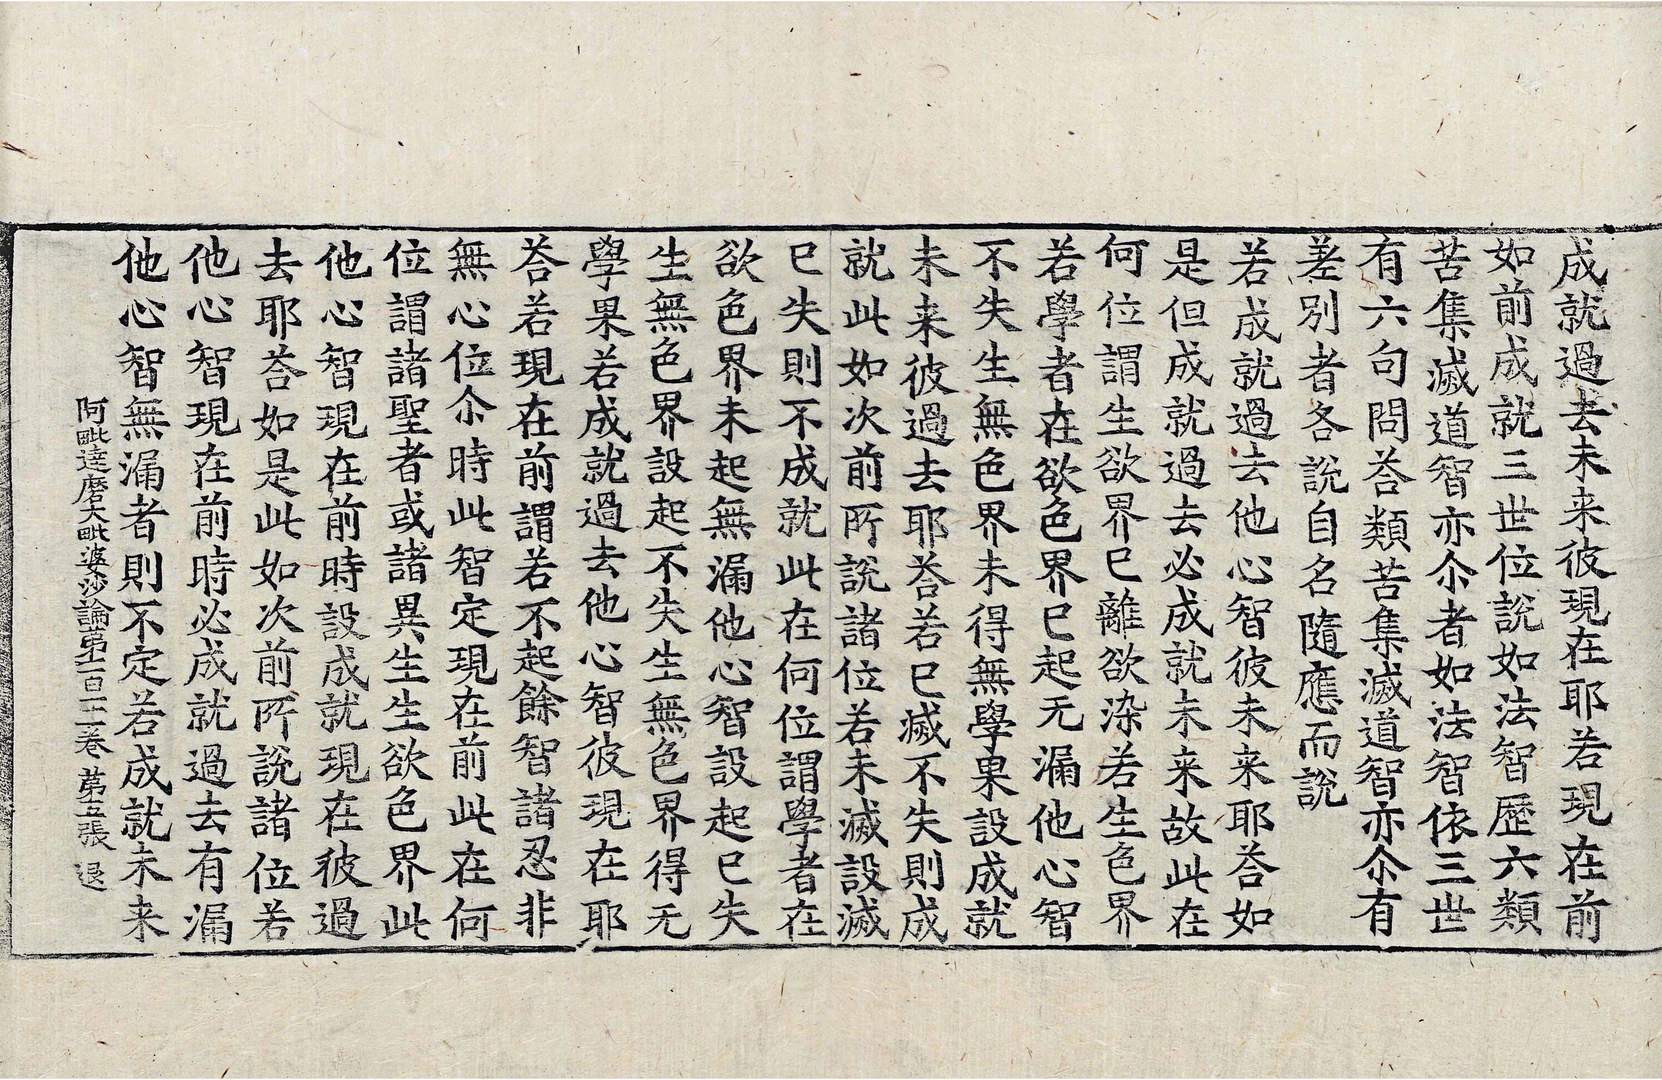 成就過去未来彼現在耶若現在前
如前成就三世位說如法智歷六類
苦集滅道智亦尒者如法智依三世
有六句問荅類苦集滅道智亦尒有
差別者各說自名隨應而說
若成就過去他心智彼未来耶荅如
是但成就過去必成就未来故此在
何位謂生欲界已離欲染若生色界
若學者在欲色界已起无漏他心智
不失生無色界未得無學果設成就
未来彼過去耶荅若已滅不失則成
就此如次前所說諸位若未滅設滅
已失則不成就此在何位謂學者在
欲色界未起無漏他心智設起已失
生無色界設起不失生無色界得无
學果若成就過去他心智彼現在耶
荅若現在前謂若不起餘智諸忍非
無心位尒時此智定現在前此在何
位謂諸聖者或諸異生生欲色界此
他心智現在前時設成就現在彼過
去耶荅如是此如次前所說諸位若
他心智現在前時必成就過去有漏
他心智無漏者則不定若成就未来
阿毗達磨大毗婆沙論第一百二卷 第五張 退